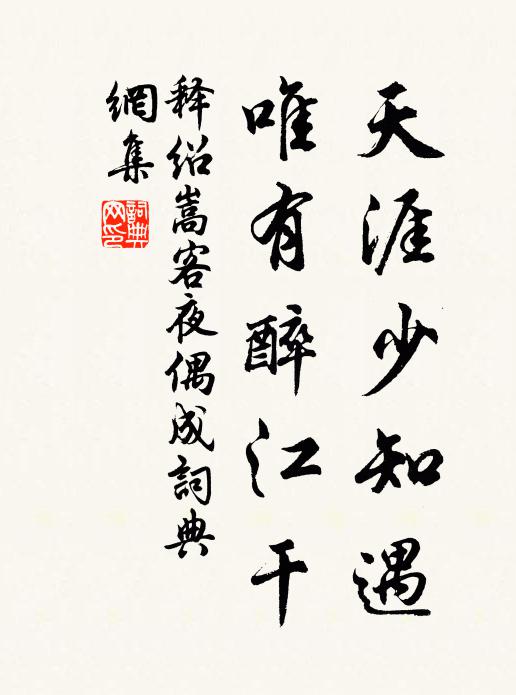 天涯少知遇
唯有醉江干
释绍嵩客夜偶成詞典
網集
詞典
网印